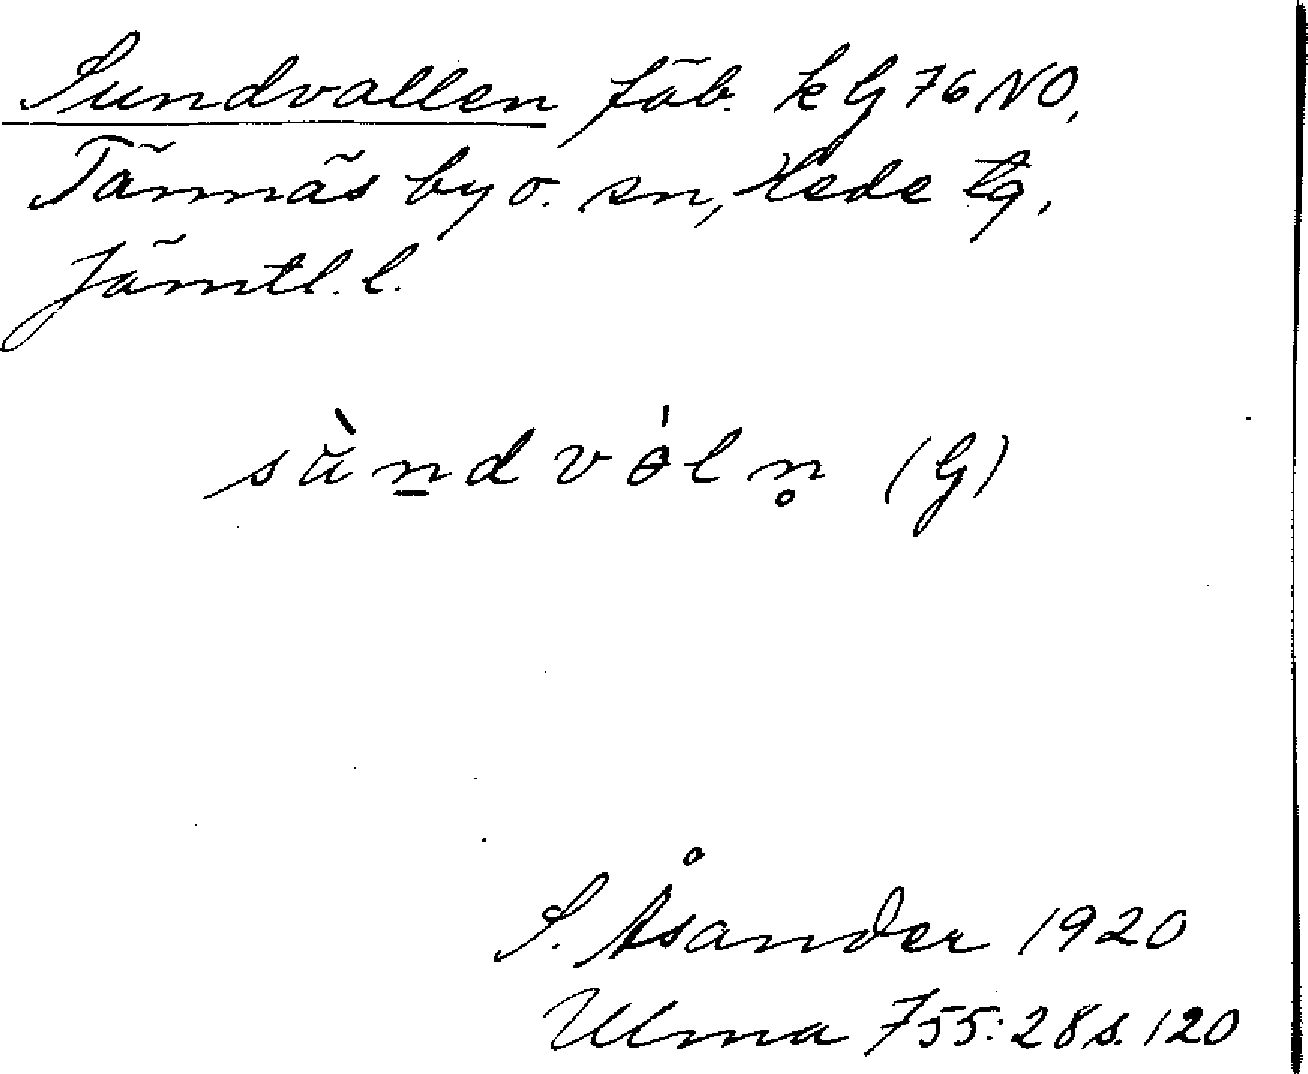 Sundvallen fäb. k G 76 NO,
Tännäs by o. sn, Hede tg,
Jämtl. l.
sùn̠dvɵ́ln̥ (G)
S. Åsander 1920
Ulma 755:28 s. 120